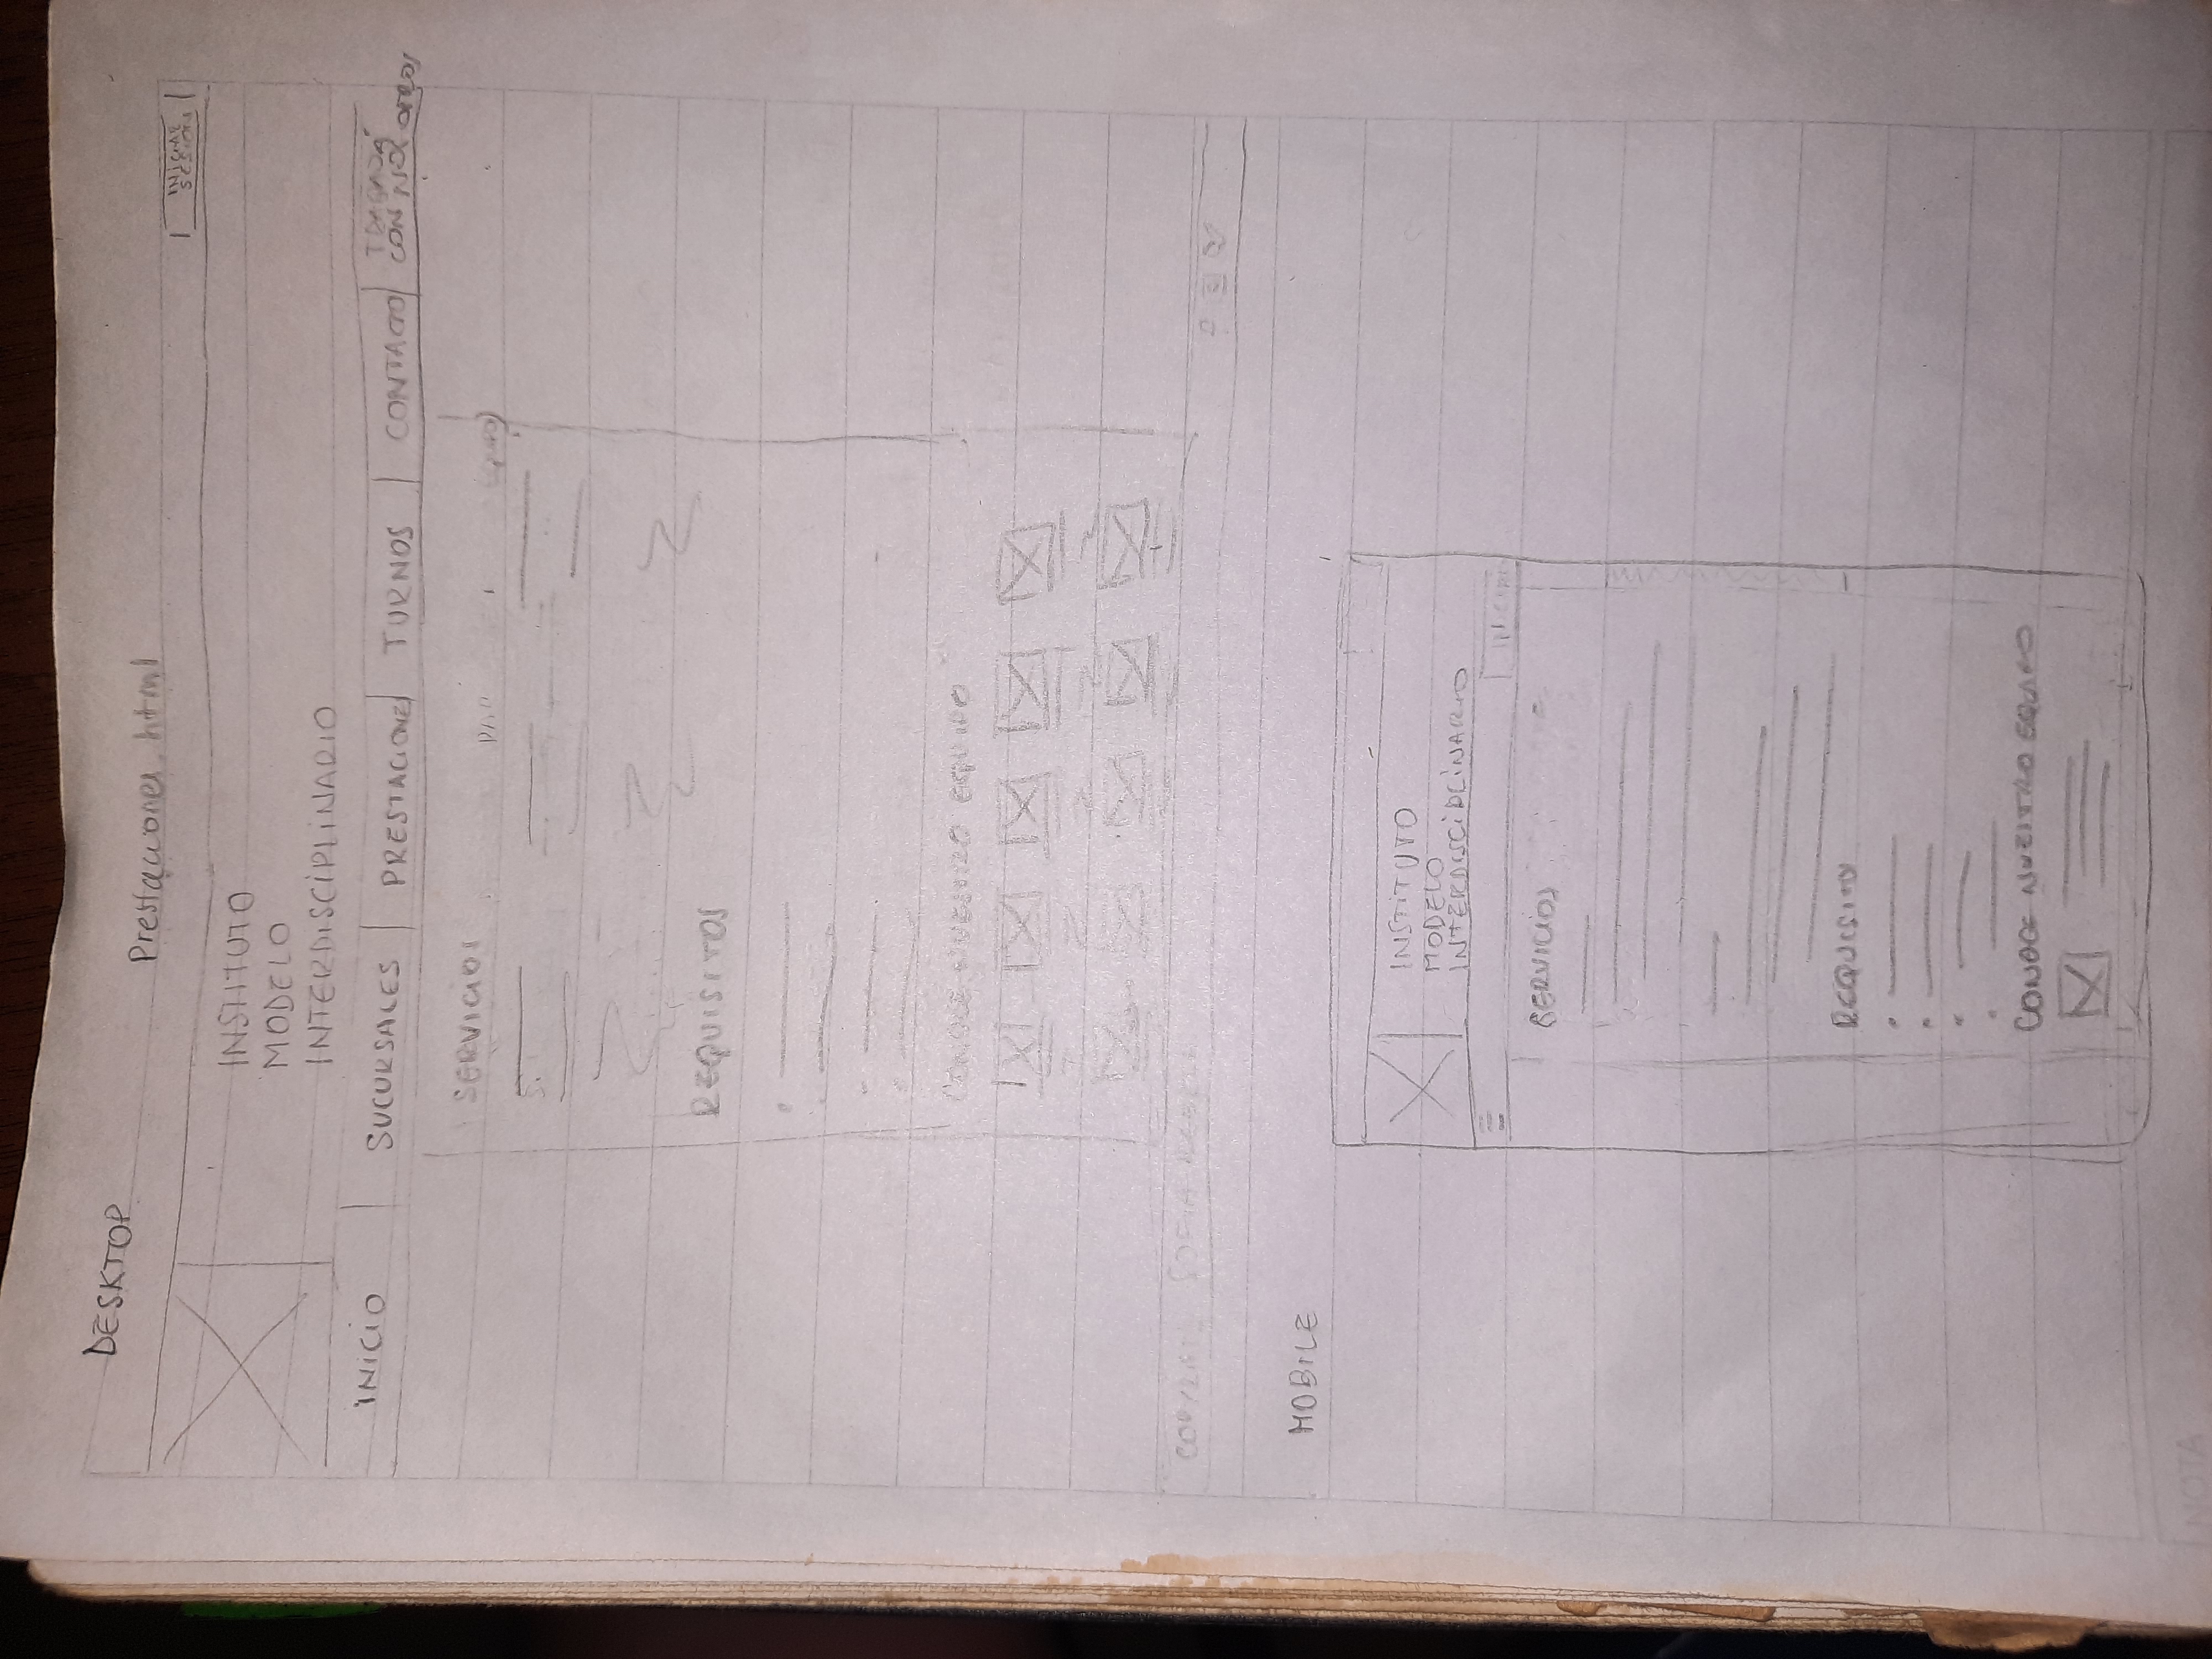 DESKTOP
Prestaciones.html
INICIAR
SESION
INSTITUTO
MODELO
INTERDISCIPLINARIO
INICIO
SUCURSALES
PRESTACIONES
TURNOS
CONTACTO
TRABAJA
CON NOSOTROS
SERVICIOS
REQUISITOS
CONOCE NUESTRO EQUIPO
SOFIA
MOBILE
INSTITUTO
MODELO
INTERDISCIPLINARIO
SERVICIOS
REQUISITOS
CONOCE NUESTRO EQUIPO
NOTA